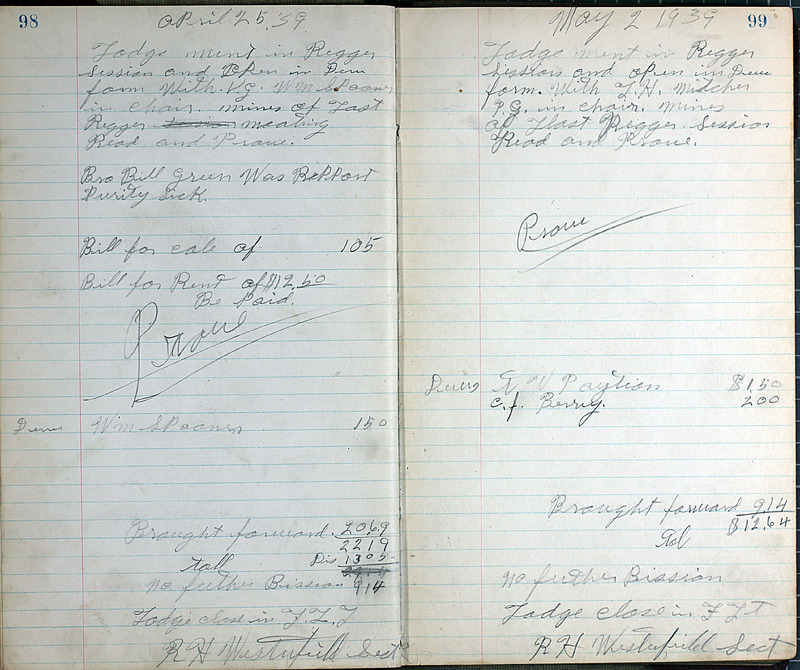 98
April 25, 39
Lodge ment in Regger
Session and Open in Deu
form With V.g. Wm Spooner
in Chair. mines of Last
Regger Session meating
Read and Prove.
Bro Bill Green Was Repport
Purity Sick.
Bill for cale of 105
Bill for Rent of $12.50
Be Paid.
Prove
Dews Wm Spooner 150
Brought forward. 2069
2219
Toll Dis 1305
914
No futher Bission
Lodge close in F.L.T
RH Westerfield Sect
99
May 2 1939
Lodge ment in Regger
Session and open in Deu
form. With L.H. Mitcher
P.G. in chair. mines
of Last Regger Session
Read and Prove.
Prove
Dews N W Paytion $1.50
C.f. Berry. 200
Brought forward 914
$12.64
Tol
No futher Bission
Lodge close in F L T
RH Westerfield Sect